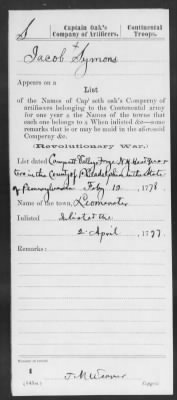 S
Captain Oak's
Company of Artificers.
Continental
Troops.
Jacob Symons
Appears on a
List
of the Names of Cap' seth oak's Company of
artificers belonging to the Continental army
for one year & the Names of the towns that
each one belongs to & When inlisted &c—some
remarks that is or may be maid in the aforesaid
Company &c.
(Revolutionary War.)
List dated Camp att Valley Forge
in the County of Philadelphia in the State
of Pennsylvania Feby 10, 1778.
Name of the town, Leominster
Inlisted
2 April, 1777.
Remarks:
Number of record:
1
(545a)
J. M. Weaver
Copyist.